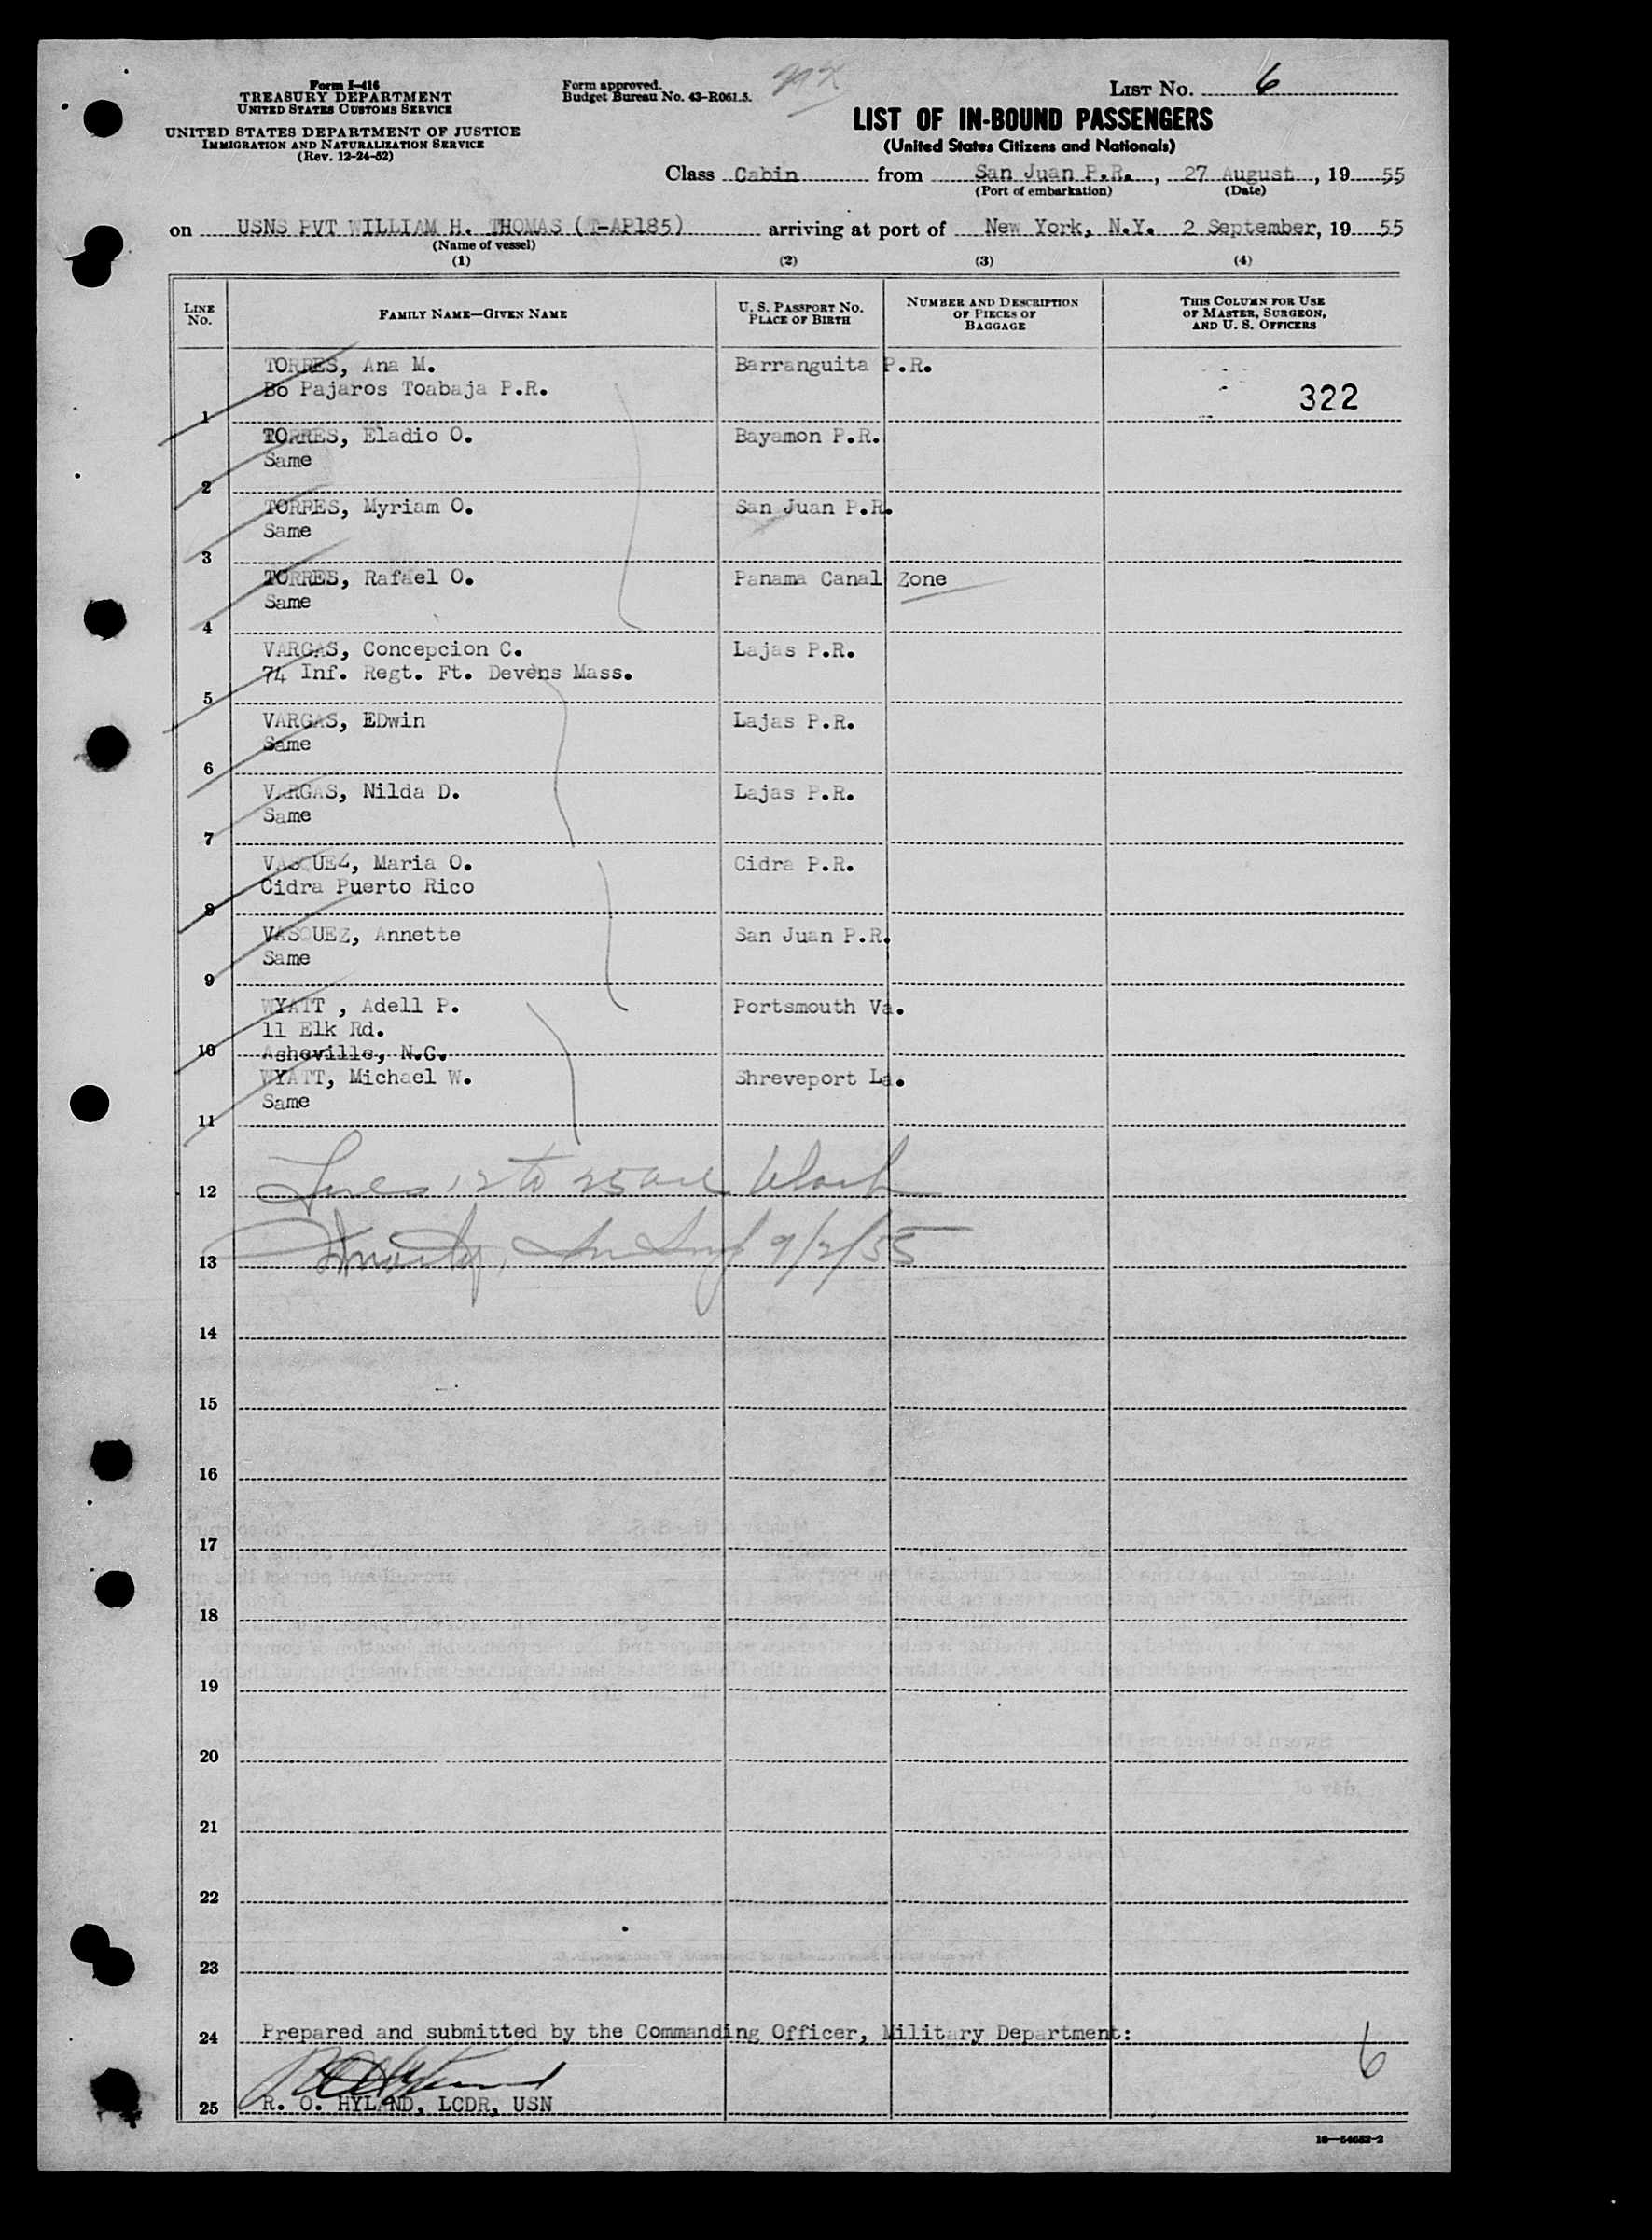 Form I-416
TREASURY DEPARTMENT
UNITED STATES CUSTOMS SERVICE
UNITED STATES DEPARTMENT OF JUSTICE
IMMIGRATION AND NATURALIZATION SERVICE
(Rev. 12-24-52)
Form approved.
Budget Bureau No. 43-R061.5.
LIST No. 6
LIST OF IN-BOUND PASSENGERS
(United States Citizens and Nationals)
Class Cabin from San Juan P.R., 27 August, 1955
(Port of embarkation) (Date)
on USNS PVT WILLIAM H. THOMAS (T-AP185) arriving at port of New York, N.Y. 2 September, 1955
(Name of vessel)
(1) (2) (3) (4)
LINE No. FAMILY NAME—GIVEN NAME U. S. PASSPORT No. PLACE OF BIRTH NUMBER AND DESCRIPTION OF PIECES OF BAGGAGE THIS COLUMN FOR USE OF MASTER, SURGEON, AND U. S. OFFICERS
TORRES, Ana M. Barranguita P.R.
Bo Pajaros Toabaja P.R. 322
1
TORRES, Eladio O. Bayamon P.R.
Same
2
TORRES, Myriam O. San Juan P.R.
Same
3
TORRES, Rafael O. Panama Canal Zone
Same
4
VARGAS, Concepcion C. Lajas P.R.
74 Inf. Regt. Ft. Devens Mass.
5
VARGAS, EDwin Lajas P.R.
Same
6
VARGAS, Nilda D. Lajas P.R.
Same
7
VASQUEZ, Maria O. Cidra P.R.
Cidra Puerto Rico
8
VASQUEZ, Annette San Juan P.R.
Same
9
WYATT , Adell P. Portsmouth Va.
11 Elk Rd.
10 Asheville, N.C.
WYATT, Michael W. Shreveport La.
Same
11
12 Lines 12 to 25 are blank
13 9/2/55
14
15
16
17
18
19
20
21
22
23
24 Prepared and submitted by the Commanding Officer, Military Department:
6
25 R. O. HYLAND, LCDR, USN
16—54682-2